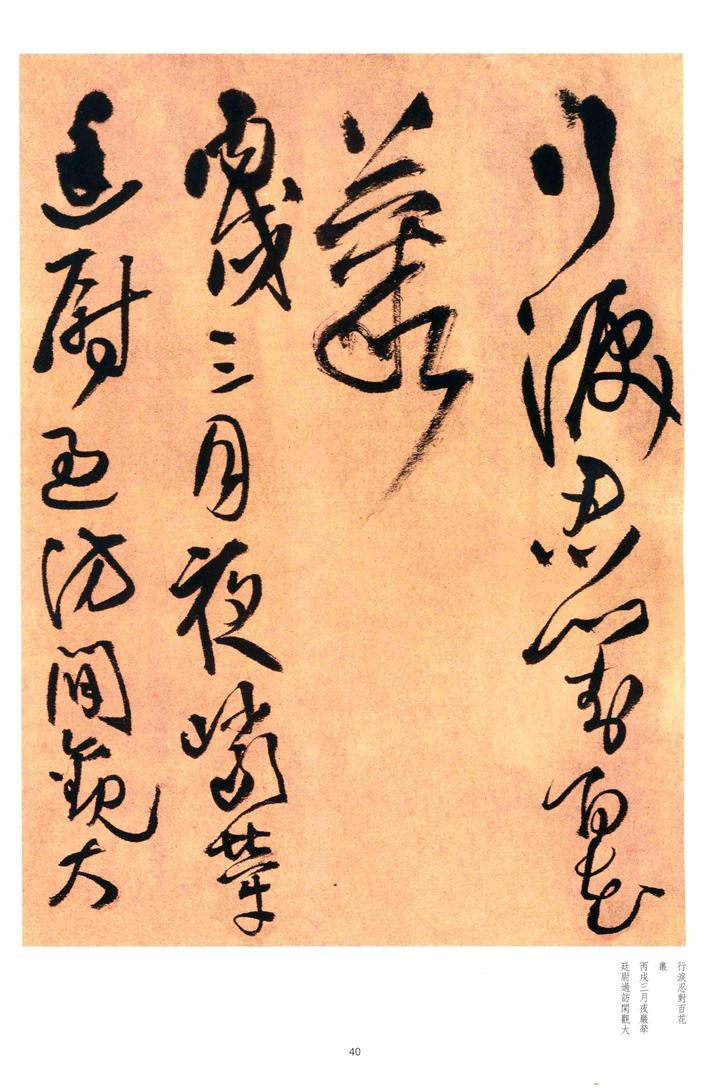 行淚忍對百花
叢
丙戌三月夜巖犖
廷尉過訪閒觀大
行淚忍對百花
叢
丙戌三月夜巖犖
廷尉過訪閑觀大
40